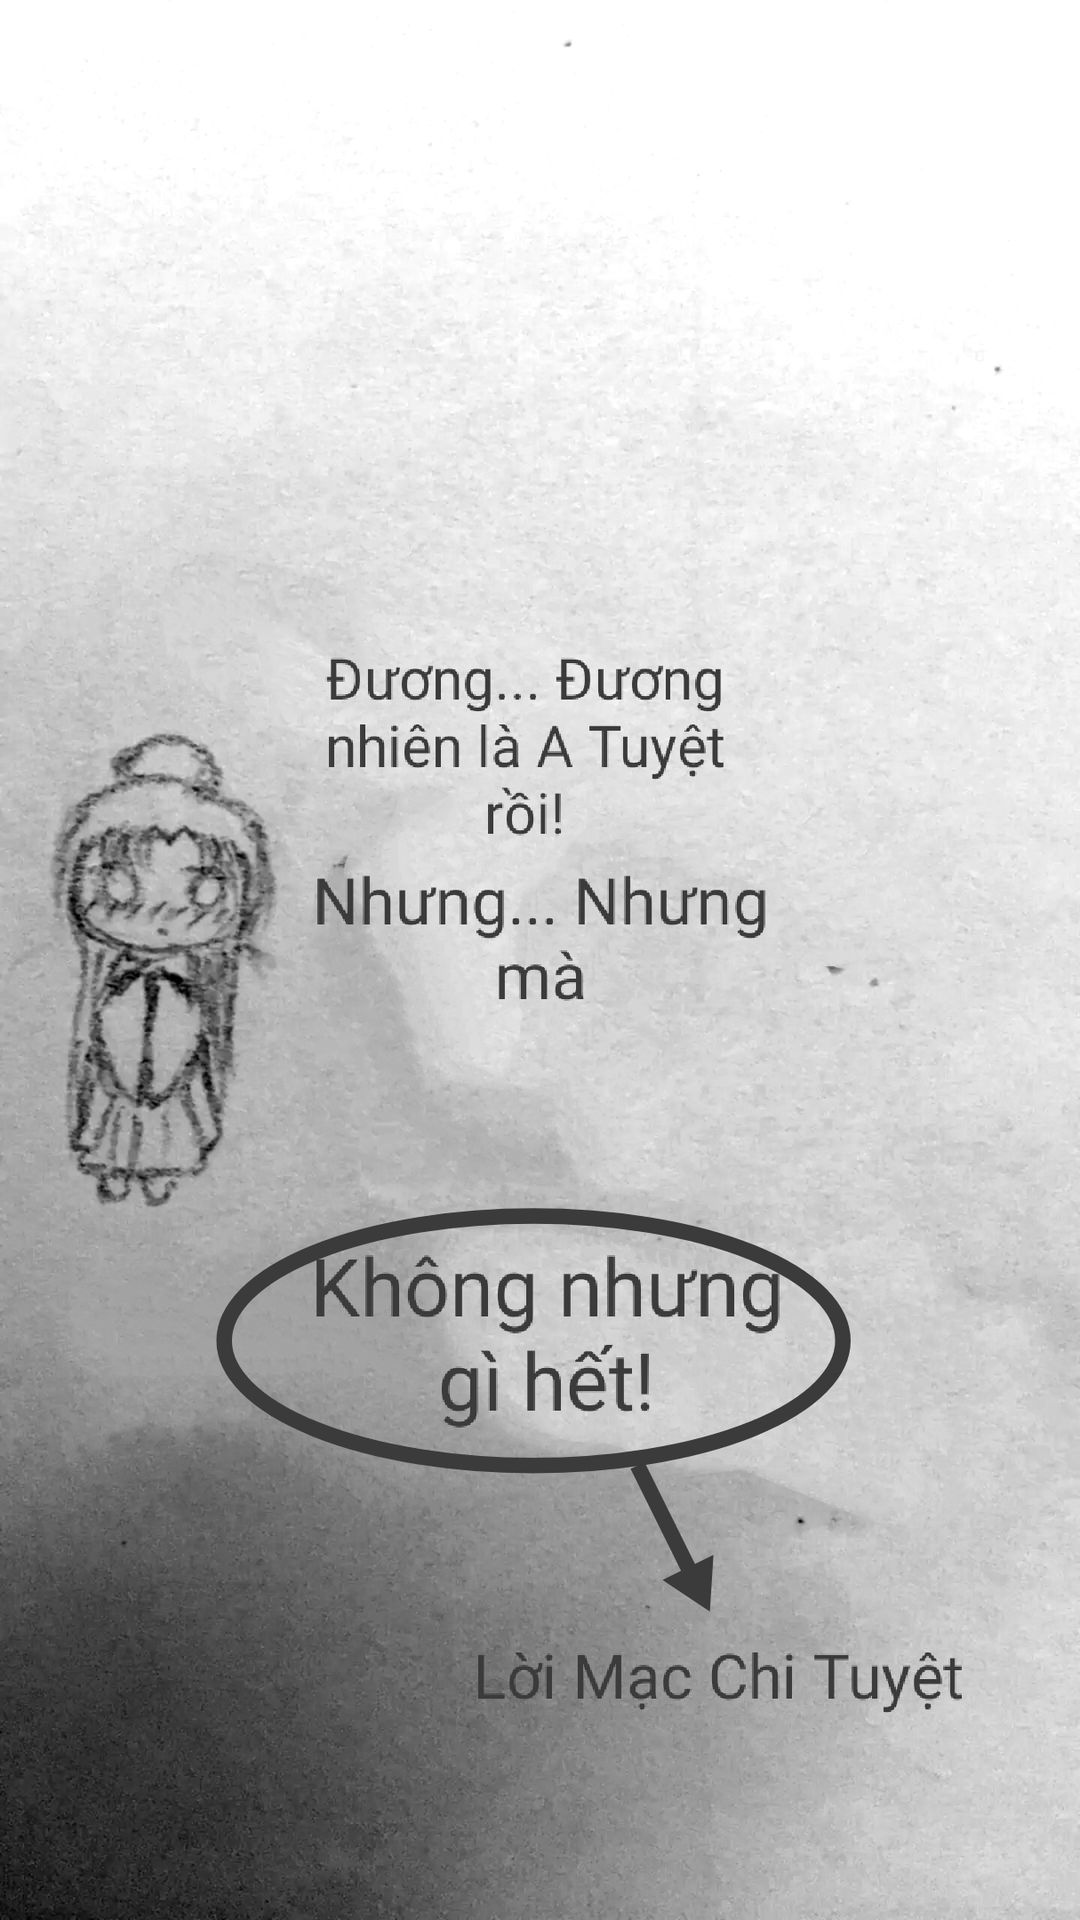 Đương... Đương
nhiên là A Tuyệt
rồi!
Nhưng... Nhưng
mà
Không nhưng
gì hết!
Lời Mạc Chi Tuyệt